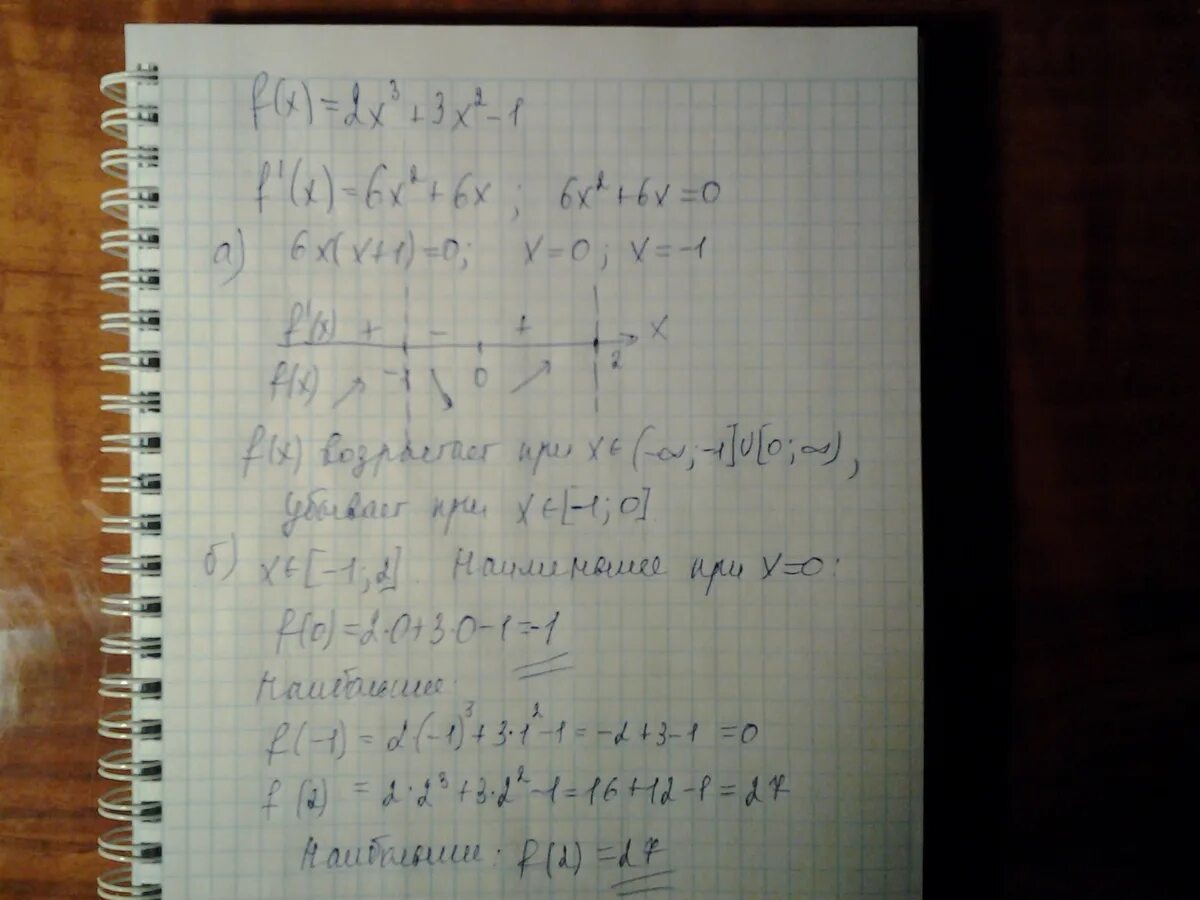 f(x) = 2x³ + 3x² - 1
f'(x) = 6x² + 6x ; 6x² + 6x = 0
а) 6x(x+1) = 0; x = 0; x = -1
f'(x) + - + x
f(x) -1 0 2
f(x) возрастает при x ∈ (-∞; -1] ∪ [0; ∞),
убывает при x ∈ [-1; 0]
б) x ∈ [-1; 2]. Наименьшее при x = 0:
f(0) = 2·0 + 3·0 - 1 = -1
Наибольшее:
f(-1) = 2(-1)³ + 3·1² - 1 = -2 + 3 - 1 = 0
f(2) = 2·2³ + 3·2² - 1 = 16 + 12 - 1 = 27
Наибольшее: f(2) = 27